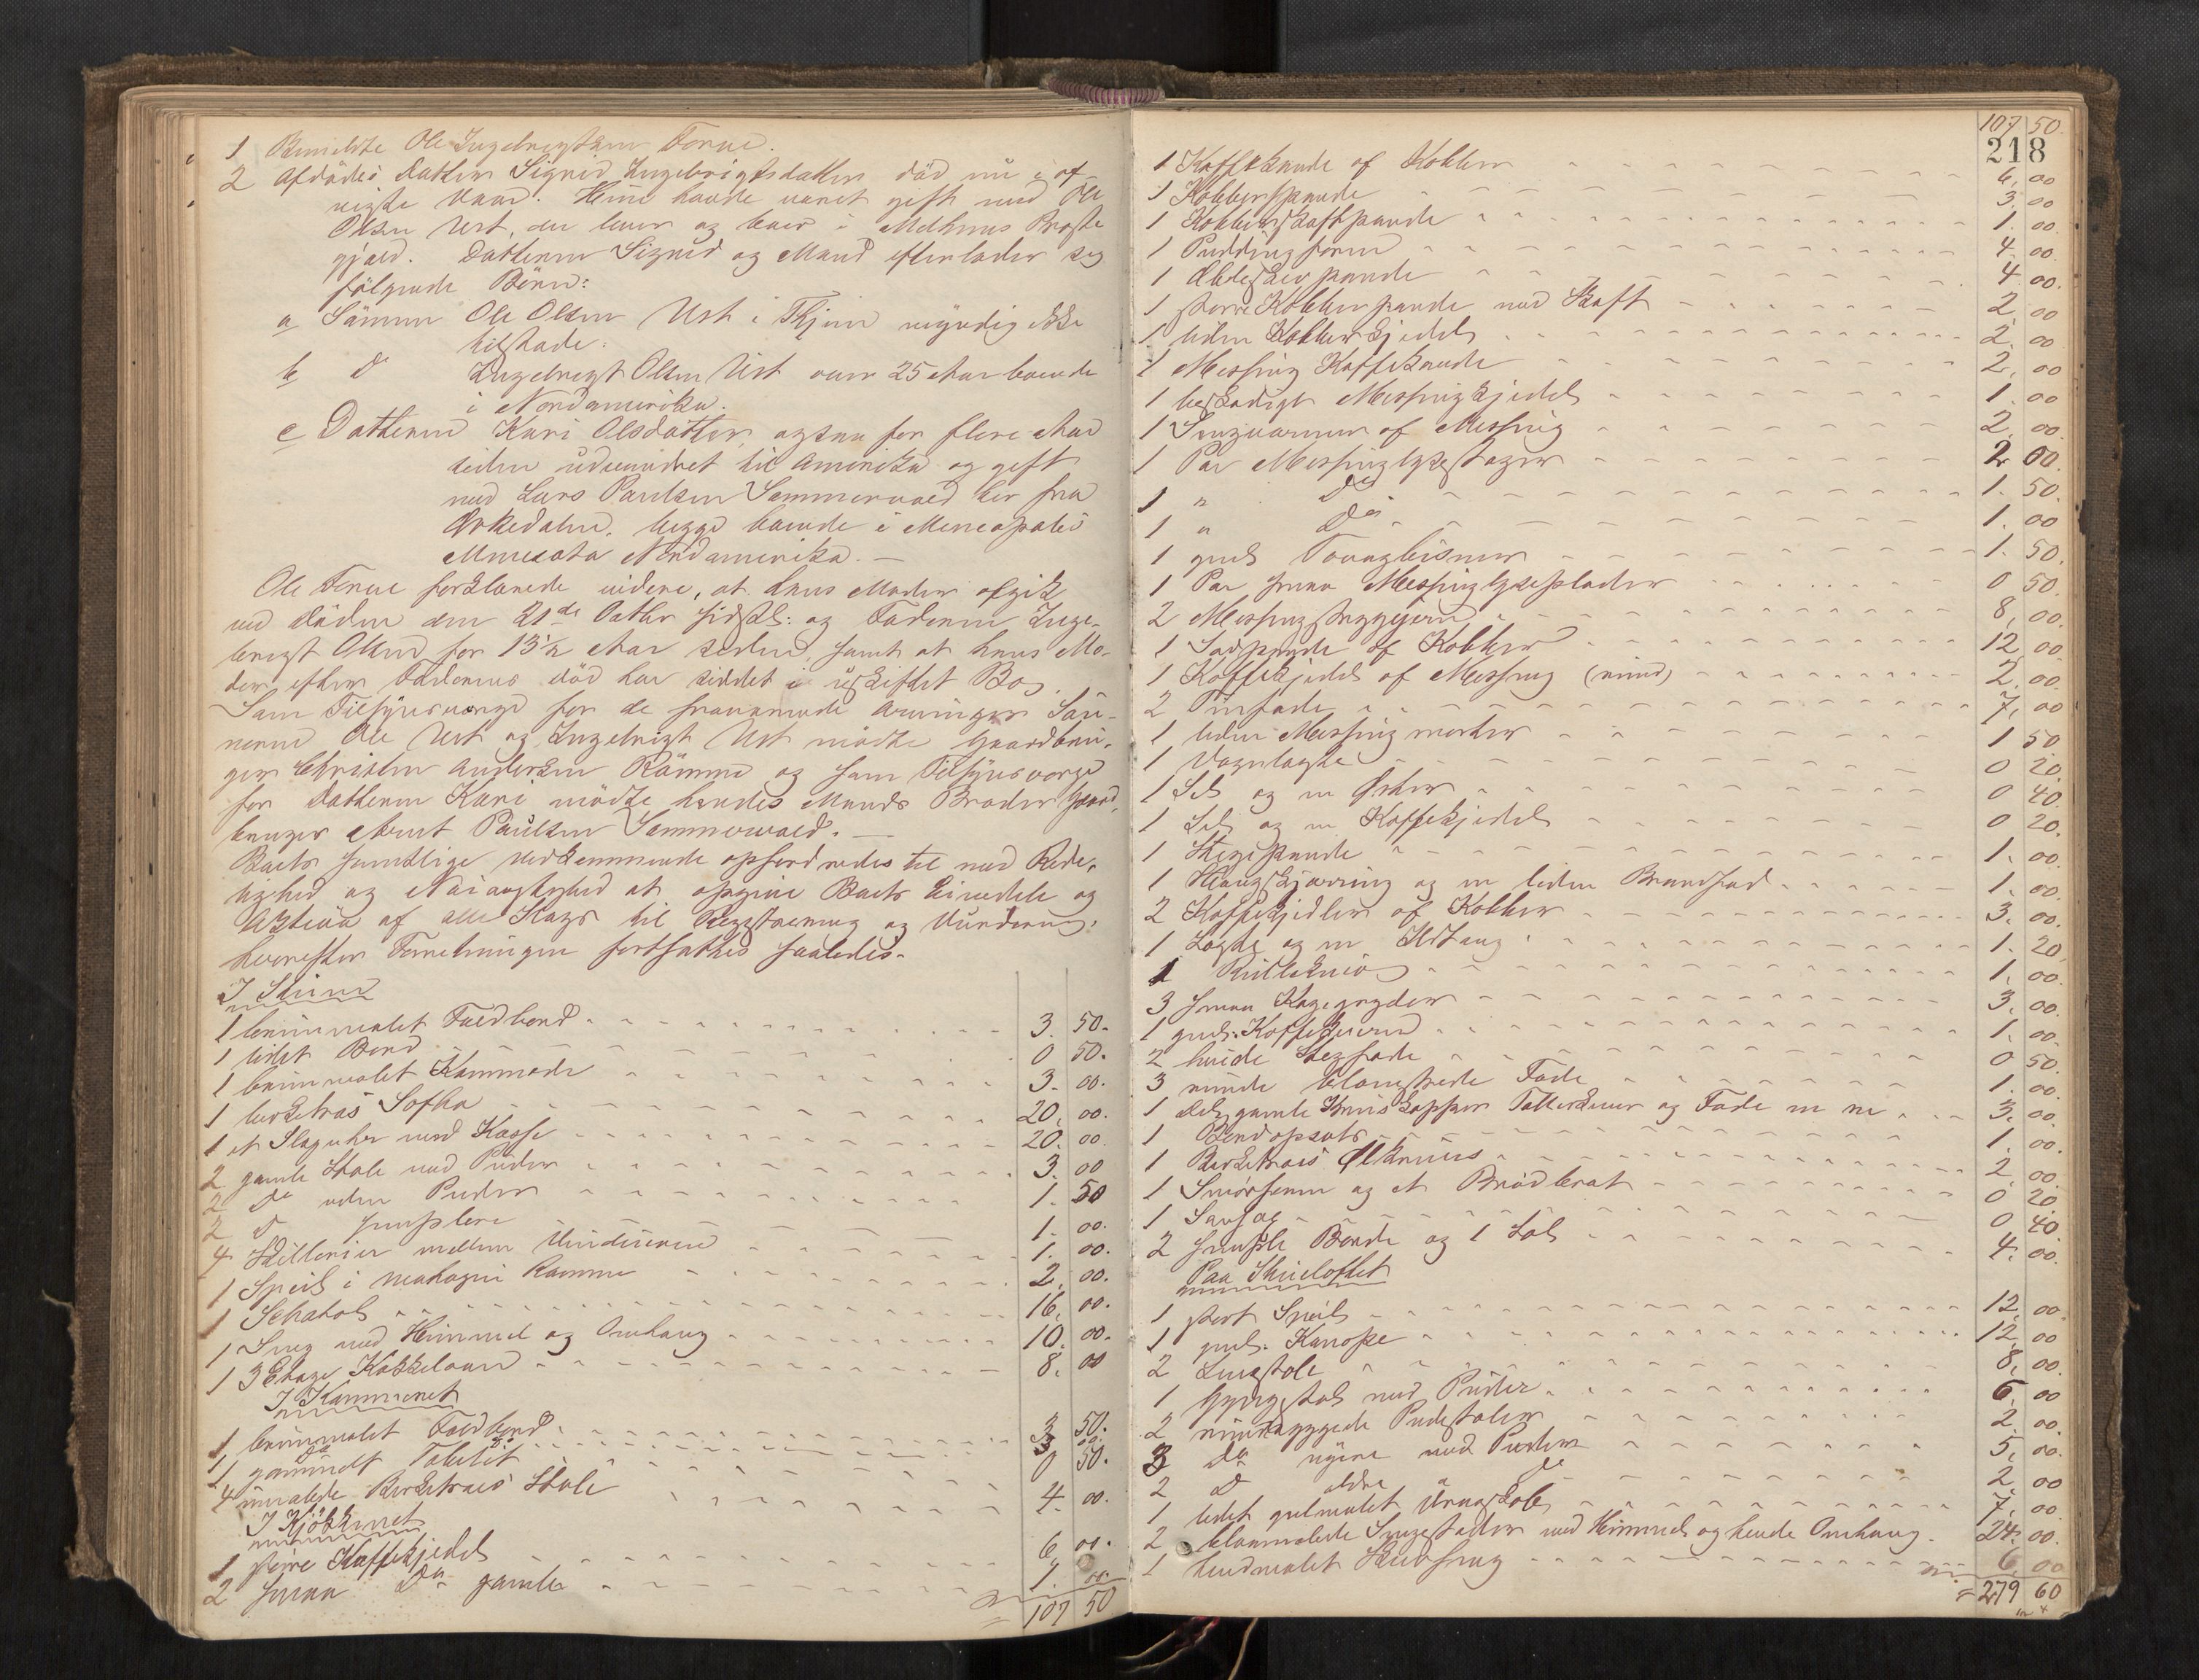 1 Bemeldte Ole Ingebrigtsen Forve.
2 Afdødes Datter Sigrid Ingebrigtsdatter død nu i af-
vigte Vaar. Hun havde været gift med Ole
Olsen Ust, der lever og boer i Melhuus Præste
gjæld. Datteren Sigrid og Mand efterlader sig
følgende Børn:
a Sønnen Ole Olsen Ust i myndig ikke
tilstede.
b D Ingebrigt Olsen Ust over 25 Aar boende
i Nordamerika.
c Datteren Kari Olsdatter, ogsaa for flere Aar
siden udvandret til Amerika og gift
med Lars Paulsen Sommervold her fra
Orkedalen, begge boende i Meneapolis
Minesota Nordamerika. —
Ole Forve forklarede videre, at hans Moder afgik
ved døden den 21de Octbr sidstl: og Faderen Inge-
brigt Olsen for 13½ Aar siden, samt at hans Mo-
der efter Faderens død har siddet i uskiftet Bo.
Som Tilsynsværge for de fraværende Arvinger Søn-
nerne Ole Ust og Ingebrigt Ust mødte Gaardbru-
ger Christen Andersen Rømme og som Tilsynsværge
for Datteren Kari mødte hendes Mands Broder Gaard-
bruger Arnt Paulsen Sommervold. —
Boets samtlige vedkommende opfordredes til med Rede-
lighed og Nøiagtighed at opgive Boets Eiendele og
Aktiva af alle Slags til Registrering og Vurdering,
hvorefter Forretningen fortsattes saaledes.
I Stuen
1 brunmalet Foldbord 3. 50.
1 lidet Bord 0 50.
1 brunmalet Kommode 3. 00.
1 birketræs Sofha 20. 00.
1 et Slaguhr med Kasse 20. 00
2 gamle Stole med Puder 3. 00
2 Do uden Puder 1. 50
2 D simplere 1. 00.
4 Skillerier mellem Vinduerne 1. 00.
1 Speil i Mahogni Ramme 2. 00.
1 Schatol 16. 00.
1 Seng med Himmel og Omhang 10. 00.
1 3 Etage Kakkelovn 8. 00
I Kammeret
1 brunmalet Foldbord 3 50.
1 Do 3 00.
1 gammelt Toilet 0 50.
4 umalede Birketræs Stole 4. 00.
I Kjøkkenet
1 større Kaffekjedel 6 00.
2 smaa Do gamle 1. 00
= 107 50
107 50.
218
1 Kaffekande af Kobber 6. 00
1 Kobberpande 3. 00
1 Kobberskaftpande 1. 00
1 Puddingform 4. 00.
1 Ableskivpande 4 00.
1 større Kobberpande med Skaft 2. 00
1 liden Kobberkjedel 2. 00
1 Messing Kaffekande 2. 00
1 beskadiget Messingkjedel 1. 00
1 Sengvarmer af Messing 2. 00
1 Par Messinglysestager 2 00.
1 " Do 1. 50.
1 " Do 1. 00
1 1. 50.
1 Par smaa Messinglyseplader 0 50.
2 Messingstrygejern 8, 00.
1 Sodpande af Kobber 12. 00
1 Kaffekjedel af Messing (rund) 2. 00.
2 Tinfade 7, 00
1 liden Messing morter 1 50
1 Vognlogte 0 20.
1 Sold og en Øsker 0 40.
1 Sold og en Kaffekjedel 0 20.
1 Stegepande 1. 00.
1 og en liden Brandsad 1. 00.
2 Kaffekjedler af Kobber 3. 00.
1 Logte og en Ildtang 1. 20
1 Rullekniv 1. 00.
3 smaa Kogegryder 3. 00.
1 gml: Kaffekværn 1. 00.
2 hvide Stegfade 0 50.
3 runde blomstrede Fade 1. 00.
1 Del gamle Krus Kopper Tallerkener og Fade m m 3. 00.
1 Bordopsats 1. 00.
1 Birketræs Ølkruus 2 00.
1 Smørform og et Brødbræt 0 20
1 0 40.
2 simple Borde og 1 Stol 4. 00.
Paa Stueloftet
1 stort Speil 12. 00.
1 gml. Kanape 12. 00
2 Lenstole 8. 00.
1 Gyngestol med Puder 6. 00
2 rundryggede Pindstoler 2. 00.
3 Do nyere med Puder 5. 00.
2 D ældre " do 2. 00
1 lidet gulmalet 7. 00.
2 blaamalede Sengesteder med Himmel og hvide Omhang 24. 00.
1 hvidmalet 6. 00
= 279 60